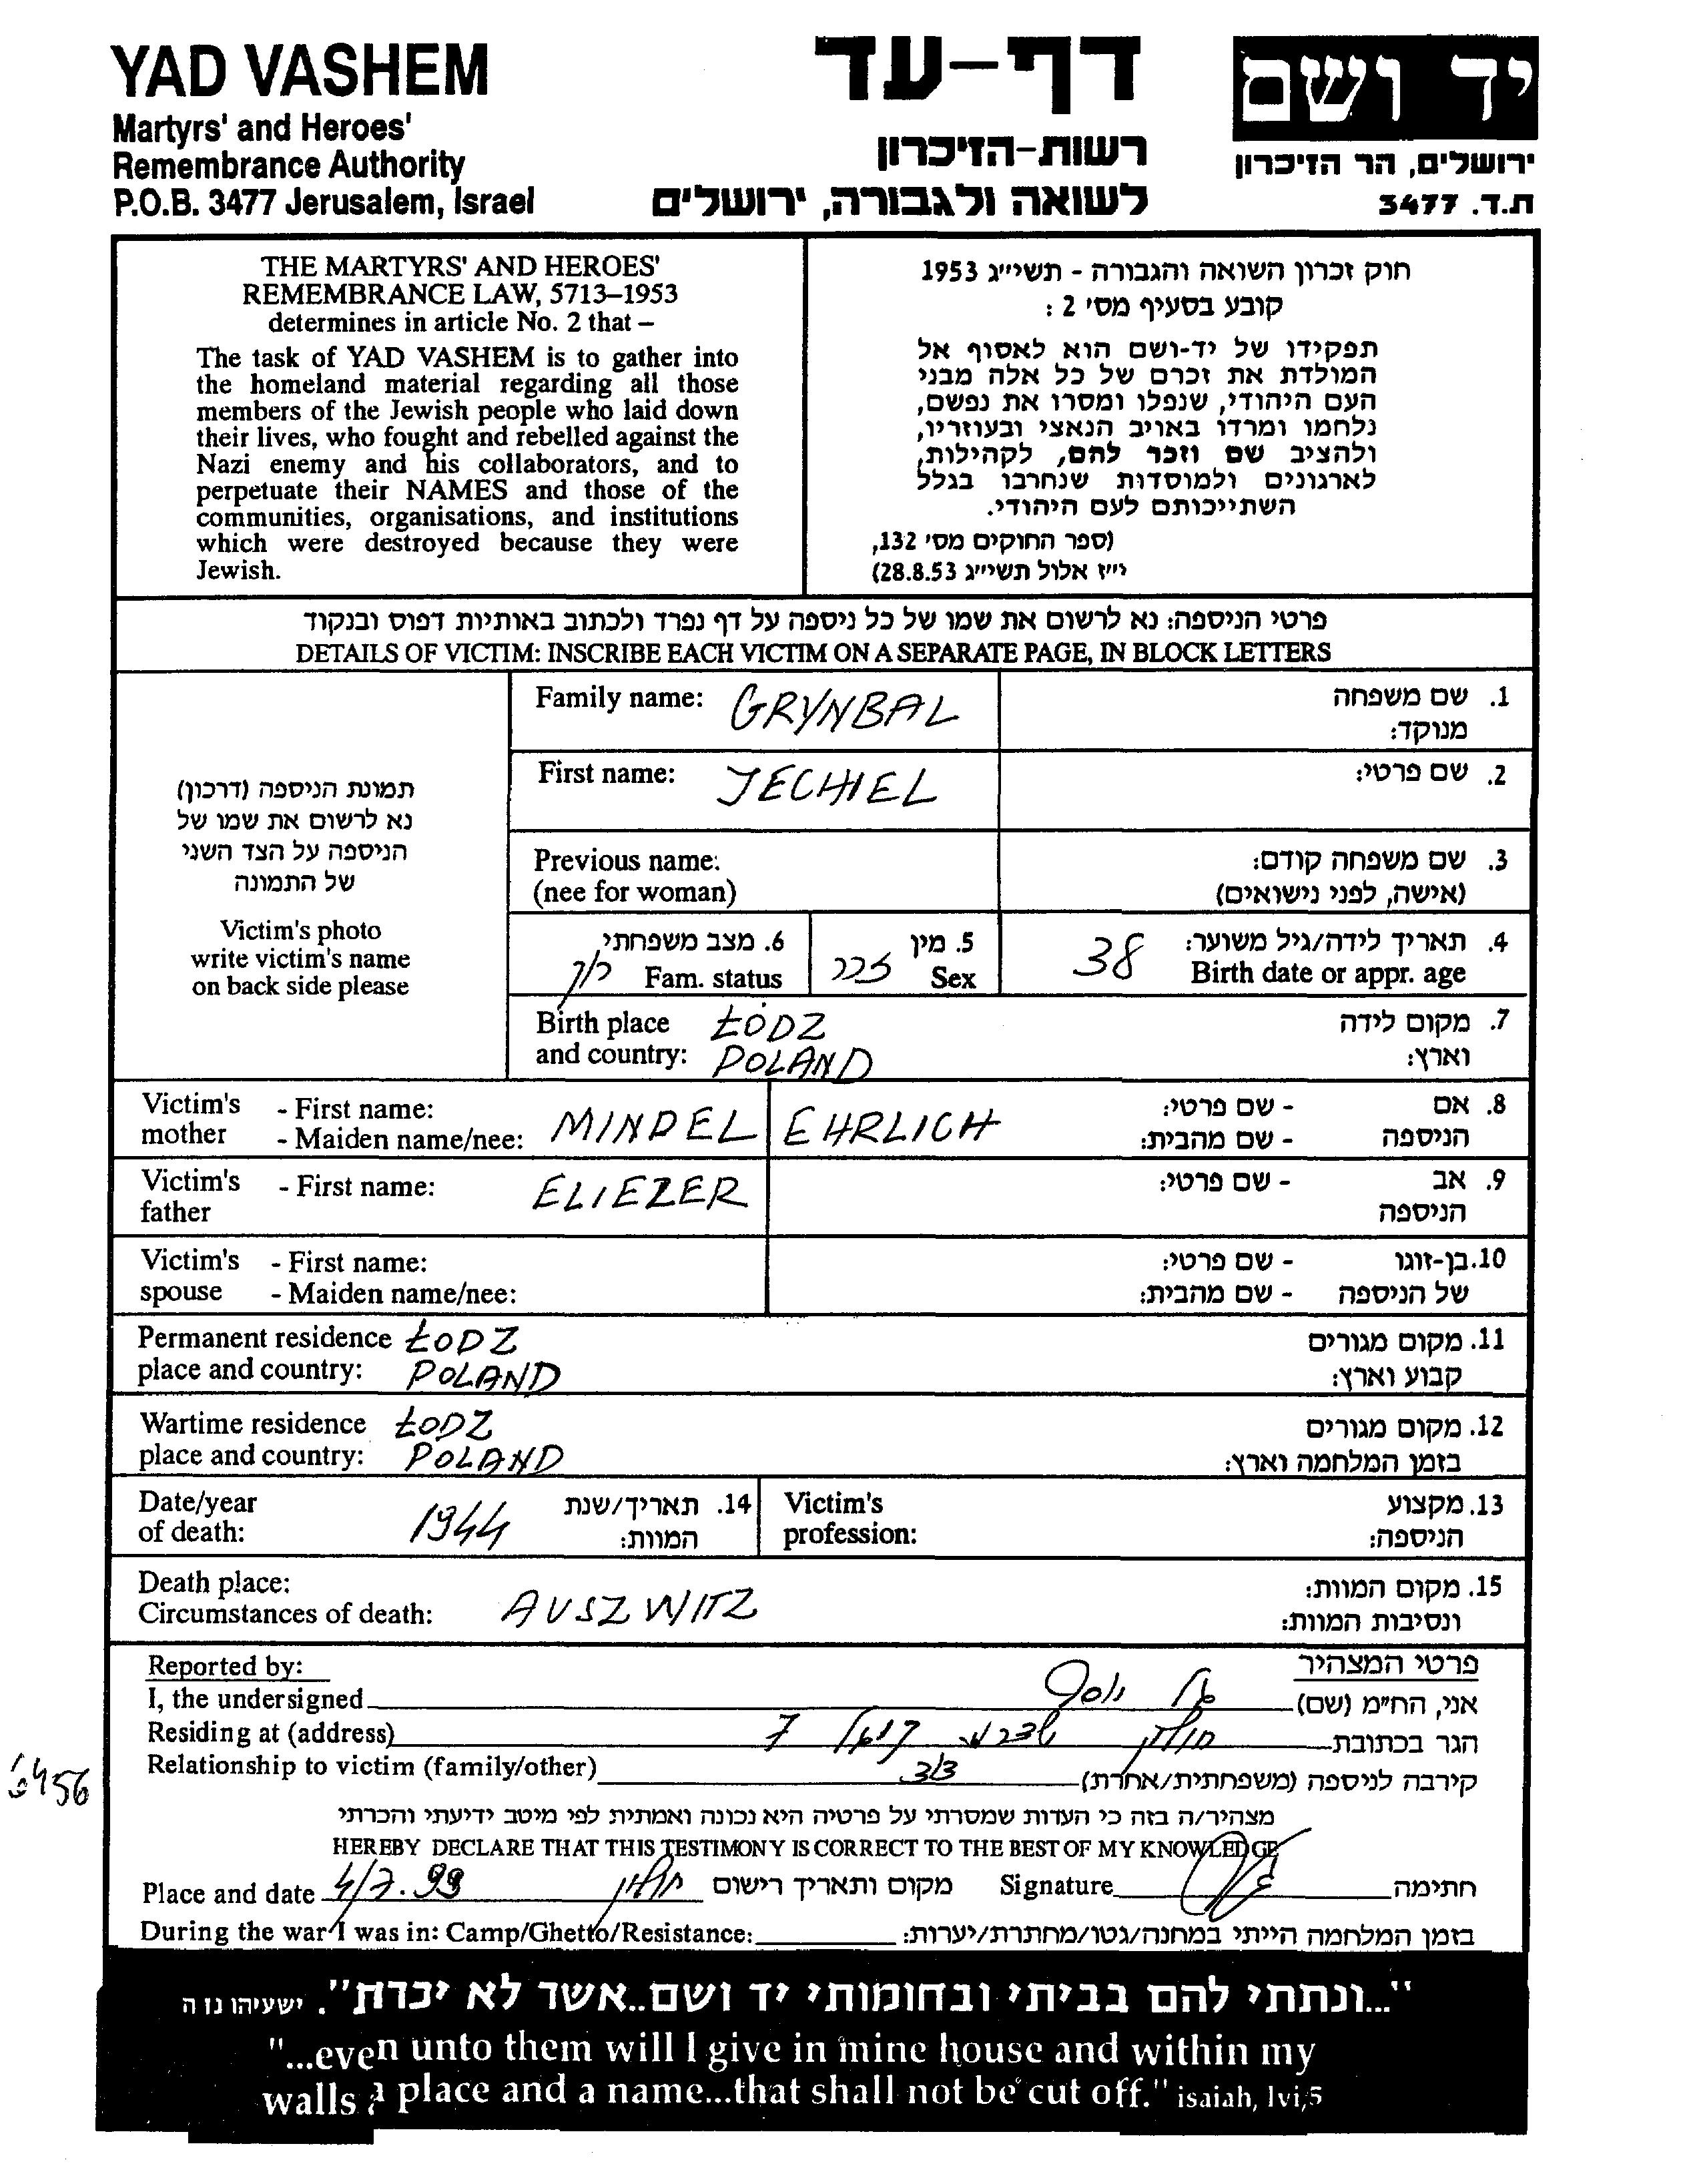 YAD VASHEM
Martyrs' and Heroes'
Remembrance Authority
P.O.B. 3477 Jerusalem, Israel
דף-עד
רשות-הזיכרון
לשואה ולגבורה, ירושלים
יד ושם
ירושלים, הר הזיכרון
ת.ד. 3477
THE MARTYRS' AND HEROES'
REMEMBRANCE LAW, 5713–1953
determines in article No. 2 that –
The task of YAD VASHEM is to gather into
the homeland material regarding all those
members of the Jewish people who laid down
their lives, who fought and rebelled against the
Nazi enemy and his collaborators, and to
perpetuate their NAMES and those of the
communities, organisations, and institutions
which were destroyed because they were
Jewish.
חוק זכרון השואה והגבורה - תשי״ג 1953
קובע בסעיף מס׳ 2 :
תפקידו של יד-ושם הוא לאסוף אל
המולדת את זכרם של כל אלה מבני
העם היהודי, שנפלו ומסרו את נפשם,
נלחמו ומרדו באויב הנאצי ובעוזריו,
ולהציב שם וזכר להם, לקהילות,
לארגונים ולמוסדות שנחרבו בגלל
השתייכותם לעם היהודי.
(ספר החוקים מס׳ 132,
י״ז אלול תשי״ג 28.8.53)
פרטי הניספה: נא לרשום את שמו של כל ניספה על דף נפרד ולכתוב באותיות דפוס ובנקוד
DETAILS OF VICTIM: INSCRIBE EACH VICTIM ON A SEPARATE PAGE, IN BLOCK LETTERS
תמונת הניספה (דרכון)
נא לרשום את שמו של
הניספה על הצד השני
של התמונה
Victim's photo
write victim's name
on back side please
Family name: GRYNBAL 1. שם משפחה
מנוקד:
First name: JECHIEL 2. שם פרטי:
Previous name: 3. שם משפחה קודם:
(nee for woman) (אישה, לפני נישואים)
6. מצב משפחתי 5. מין 4. תאריך לידה/גיל משוער:
Fam. status זכר Sex 38 Birth date or appr. age
Birth place ŁÓDZ 7. מקום לידה
and country: POLAND וארץ:
Victim's - First name: 8. אם - שם פרטי:
mother - Maiden name/nee: MINDEL EHRLICH הניספה - שם מהבית:
Victim's - First name: ELIEZER 9. אב - שם פרטי:
father הניספה
Victim's - First name: 10. בן-זוגו - שם פרטי:
spouse - Maiden name/nee: של הניספה - שם מהבית:
Permanent residence ŁODZ 11. מקום מגורים
place and country: POLAND קבוע וארץ:
Wartime residence ŁODZ 12. מקום מגורים
place and country: POLAND בזמן המלחמה וארץ:
Date/year 14. תאריך/שנת Victim's 13. מקצוע
of death: 1944 המוות: profession: הניספה:
Death place: 15. מקום המוות:
Circumstances of death: AUSZWITZ ונסיבות המוות:
Reported by: פרטי המצהיר
I, the undersigned יוסף אני, הח״מ (שם)
Residing at (address) 7 חולון הגר בכתובת
Relationship to victim (family/other) קירבה לניספה (משפחתית/אחרת)
מצהיר/ה בזה כי העדות שמסרתי על פרטיה היא נכונה ואמתית לפי מיטב ידיעתי והכרתי
HEREBY DECLARE THAT THIS TESTIMONY IS CORRECT TO THE BEST OF MY KNOWLEDGE
Place and date 4/7.99 חולון מקום ותאריך רישום Signature חתימה
During the war I was in: Camp/Ghetto/Resistance: בזמן המלחמה הייתי במחנה/גטו/מחתרת/יערות:
6456
"...ונתתי להם בביתי ובחומותי יד ושם..אשר לא יכרת". ישעיהו נו ה
"...even unto them will I give in mine house and within my
walls a place and a name...that shall not be cut off." isaiah, lvi,5